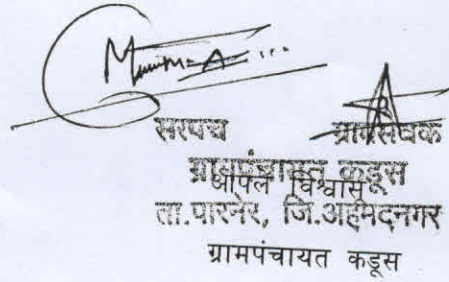 सरपंच ग्रामसेवक
ग्रामपंचायत कडूस
आपले विश्वासू
ता.पारनेर, जि.अहमदनगर
ग्रामपंचायत कडूस